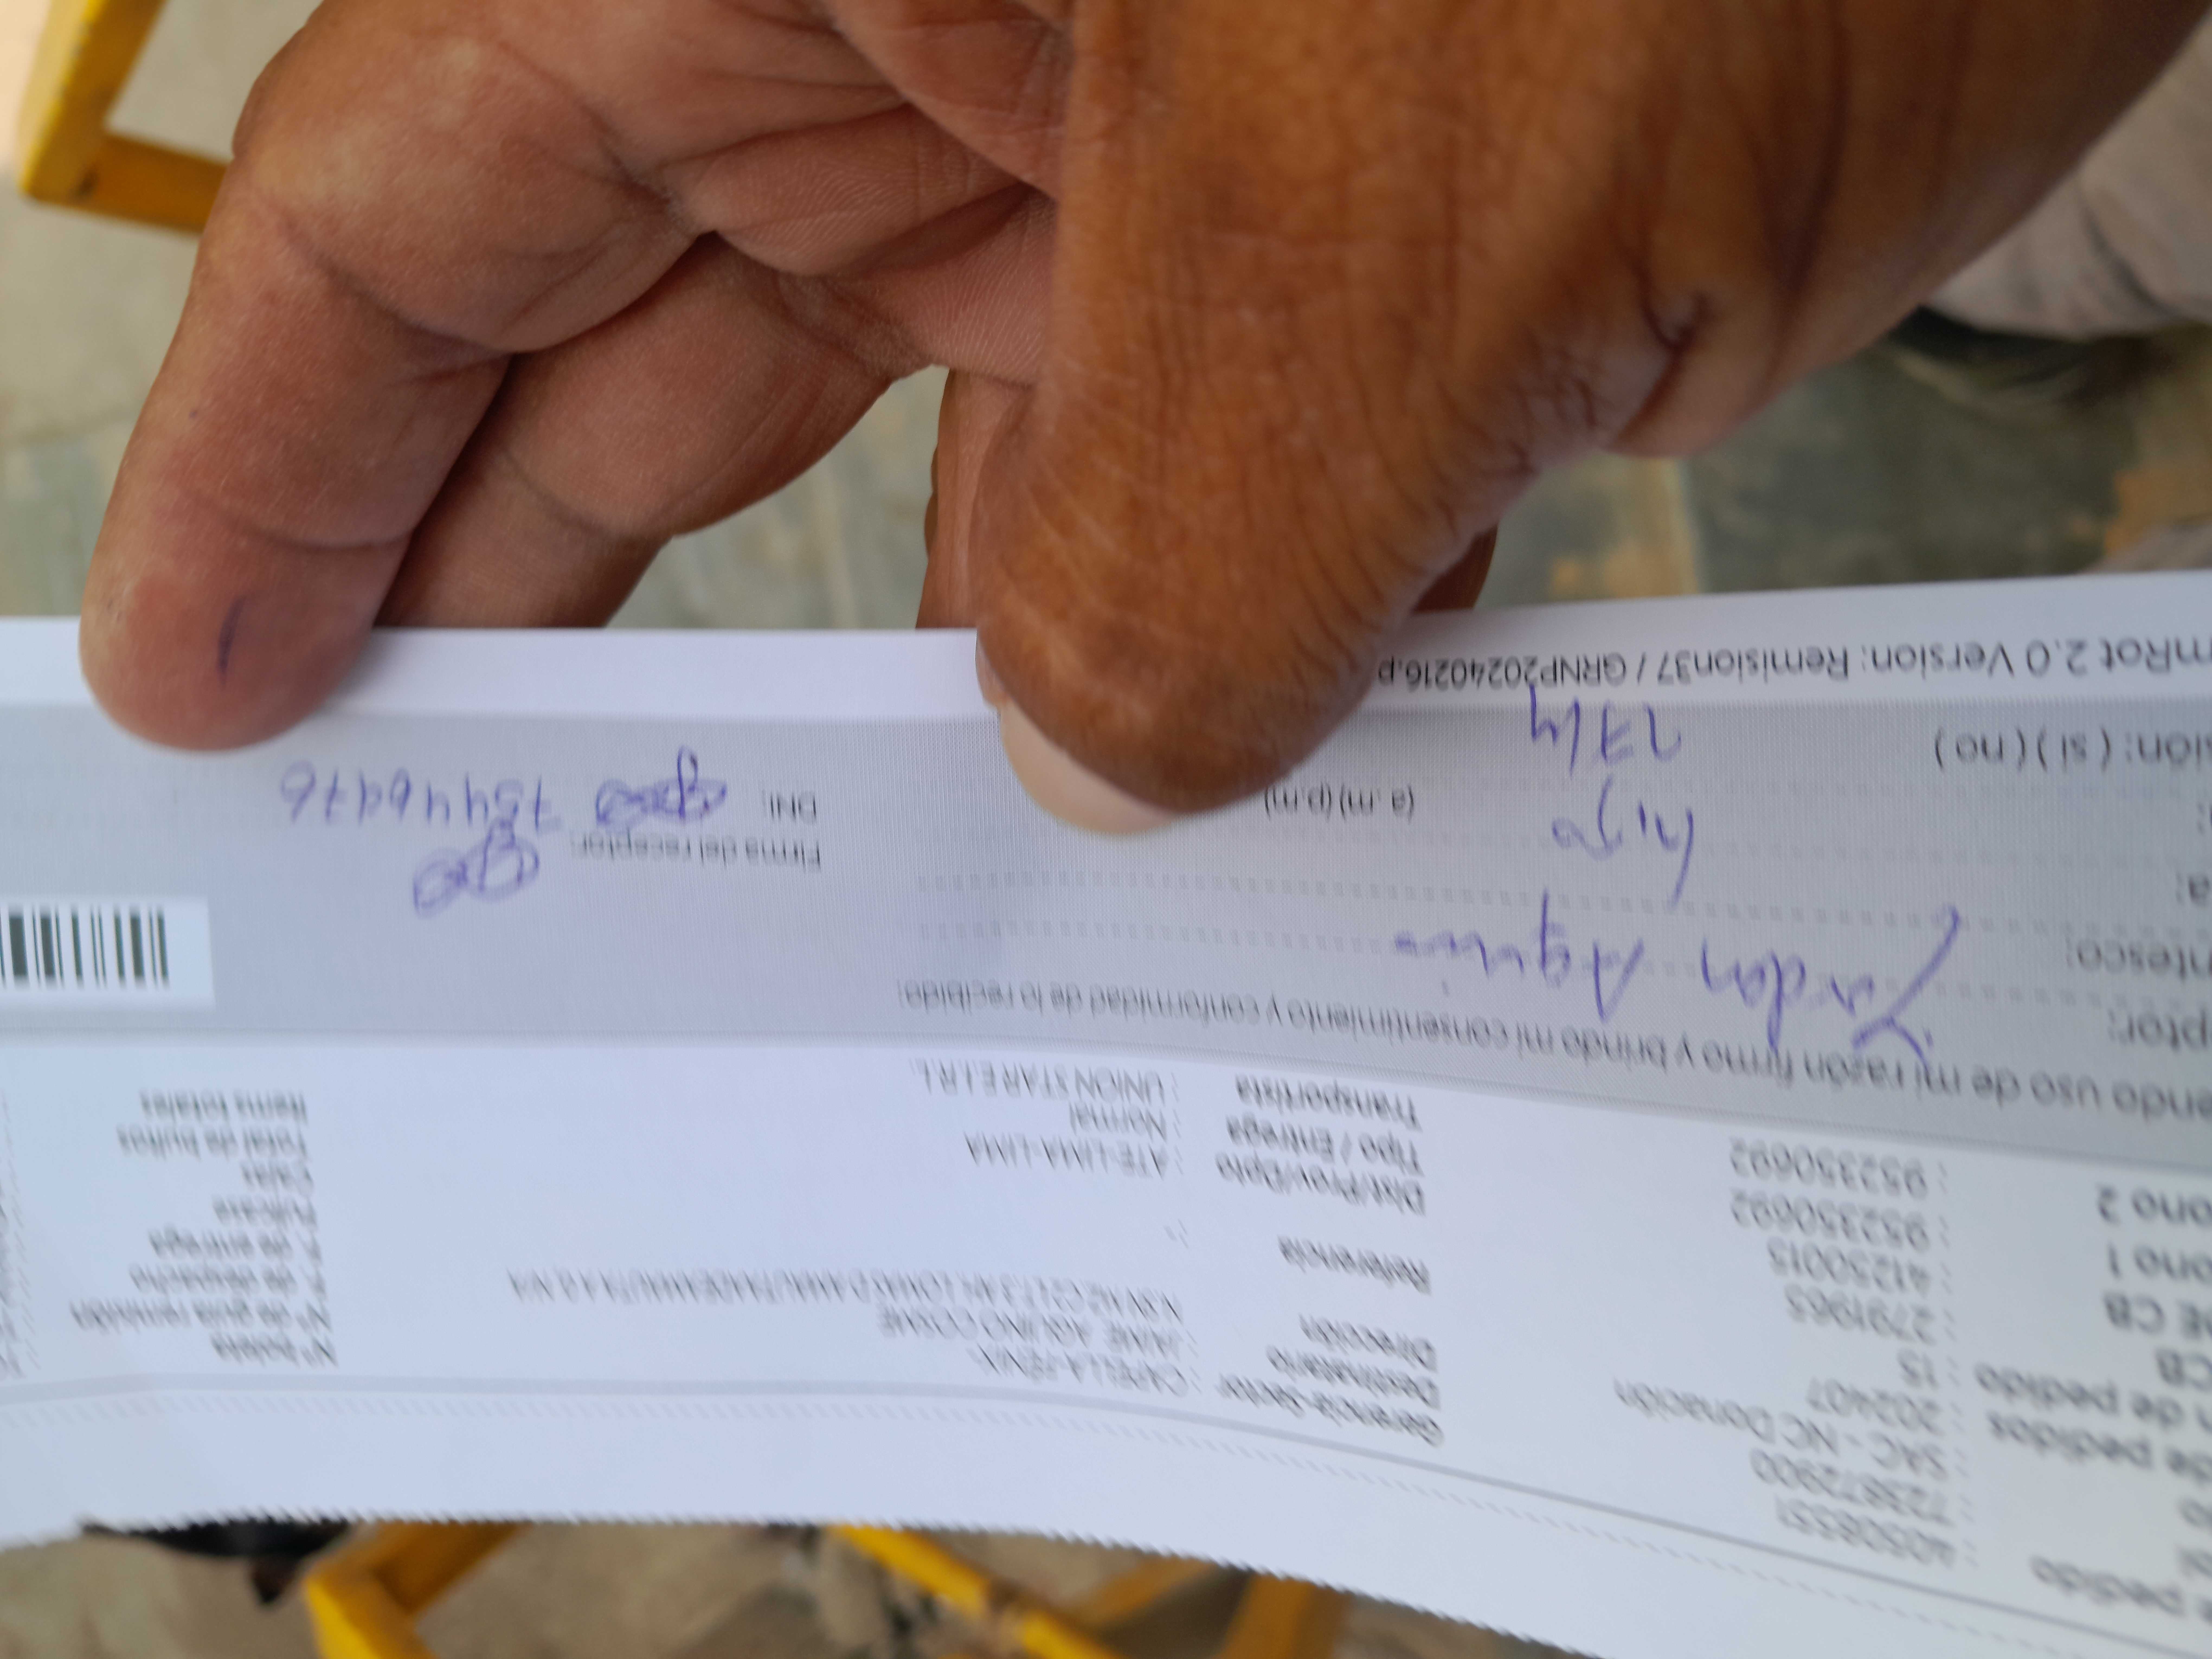 e pedido : 40508551
: 723872900
de pedidos : SAC - NC Donación
n de pedido : 202407
CB : 15
DE CB : 2791963
: 41250015
ono 1 : 952350692
ono 2 : 952350692
Gerencia-Sector : CAPELLA-FENIX-
Destinatario : JAIME AQUINO COSME
Dirección
Referencia :
Dist/Prov/Dpto : ATE-LIMA-LIMA
Tipo / Entrega : Normal
Transportista : UNION STAR E.I.R.L
N° boleta
N° de guia remisión
T° de despacho
T° de entrega
Fullcase
Cajas
Total de bultos
Items totales
endo uso de mi razón firmo y brindo mi consentimiento y conformidad de lo recibido:
ptor: Aquino
ntesco: hijo
a: 17/4 (a.m)(p.m)
sión: ( si ) ( no )
Firma del receptor:
DNI: 75446976
mRot 2.0 Version: Remision37 / GRNP20240216.p